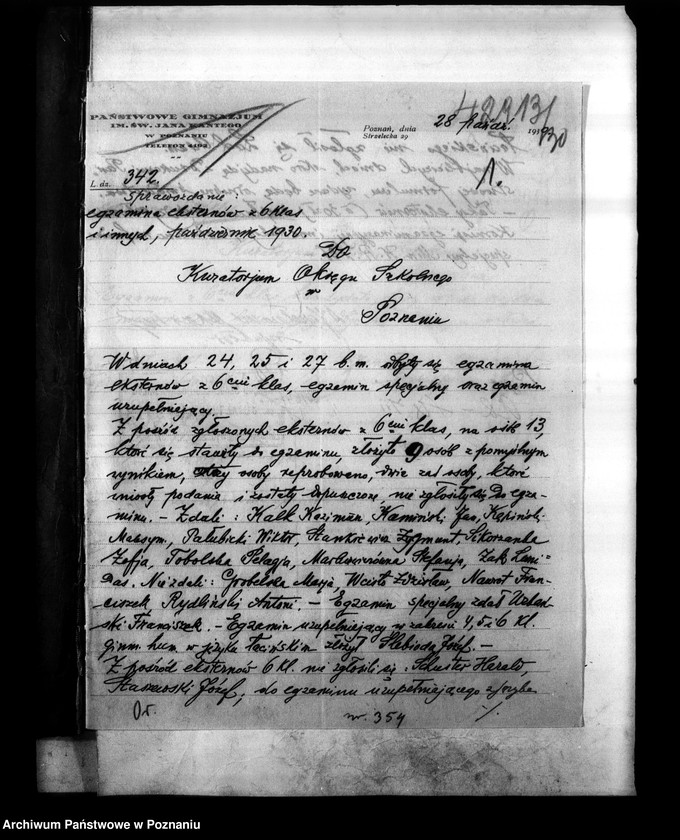 PAŃSTWOWE GIMNAZJUM
IM. ŚW. JANA KANTEGO
W POZNANIU
TELEFON 4192
Poznań, dnia 28 paźdź. 1930
Strzelecka 29
1.
L. dz. 342.
Sprawozdanie:
egzamina eksternów z 6 klas
i innych, październik 1930.
Do
Kuratorjum Okręgu Szkolnego
w
Poznaniu
W dniach 24, 25 i 27 b.m. odbyły się egzamina
eksternów z 6ciu klas, egzamin specjalny oraz egzamin
uzupełniający.
Z pośród zgłoszonych eksternów z 6ciu klas, na osób 13,
które się stawiły do egzaminu, złożyło 9 osób z pomyślnym
wynikiem, osoby reprobowano, dwie zaś osoby, które
wniosły podania i zostały dopuszczone, nie zgłosiły się do egza-
minu. - Zdali: Kalk Kazimierz, Kamiński Jan, Kępiński
Maksym, Pałubicki Wiktor, Stankiewicz Zygmunt, Sikorzanka
Zofja, Tobolska Pelagja, Stefanja, Żak Leoni-
das. Nie zdali: Grobelska Marja, Zdzisław, Nawrot Fran-
ciszek, Rydliński Antoni. - Egzamin specjalny zdał Urbań-
ski Franciszek. - Egzamin uzupełniający w zakresie 4, 5 i 6 kl.
gimn. hum. w języku łacińskim złożył Słebioda Józef. -
Z pośród eksternów 6 kl. nie zgłosili się: Schuster Harald,
Staszewski Józef; do egzaminu uzupełniającego
nr. 354
./.
Archiwum Państwowe w Poznaniu